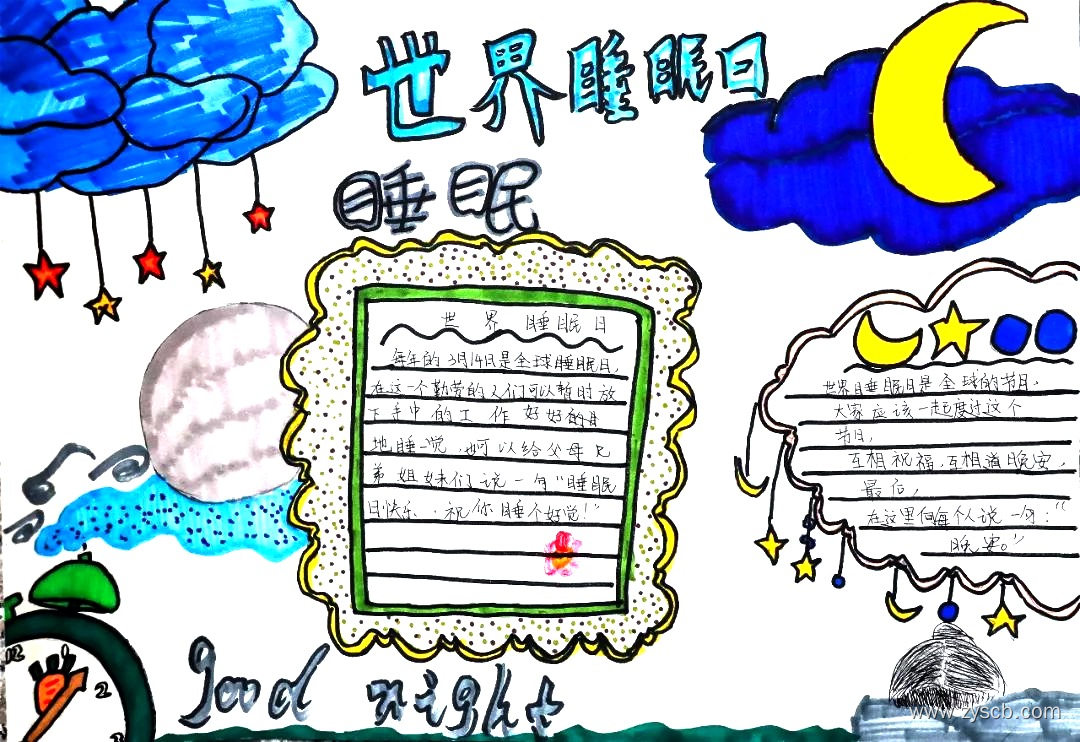 世界睡眠日
睡眠
世界睡眠日
每年的3月14日是全球睡眠日,
在这一个勤劳的人们可以暂时放
下手中的工作好好的
地睡一觉,可以给父母兄
弟姐妹们说一句“睡眠
日快乐,祝你睡个好觉!”
世界睡眠日是全球的节日,
大家应该一起度过这个
节日,
互相祝福,互相道晚安,
最后,
在这里向每个人说一句:“
晚安。”
12
1
2
3
good night
www.zyscb.com